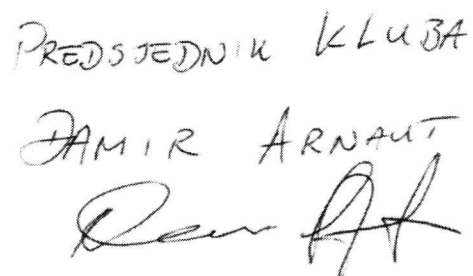 PREDSJEDNIK KLUBA
DAMIR ARNAUT